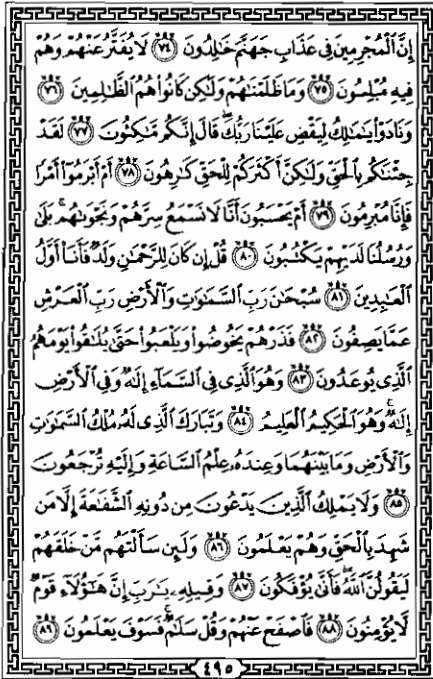 إِنَّ ٱلْمُجْرِمِينَ فِى عَذَابِ جَهَنَّمَ خَـٰلِدُونَ ٧٤ لَا يُفَتَّرُ عَنْهُمْ وَهُمْ
فِيهِ مُبْلِسُونَ ٧٥ وَمَا ظَلَمْنَـٰهُمْ وَلَـٰكِن كَانُوا۟ هُمُ ٱلظَّـٰلِمِينَ ٧٦
وَنَادَوْا۟ يَـٰمَـٰلِكُ لِيَقْضِ عَلَيْنَا رَبُّكَ ۖ قَالَ إِنَّكُم مَّـٰكِثُونَ ٧٧ لَقَدْ
جِئْنَـٰكُم بِٱلْحَقِّ وَلَـٰكِنَّ أَكْثَرَكُمْ لِلْحَقِّ كَـٰرِهُونَ ٧٨ أَمْ أَبْرَمُوٓا۟ أَمْرًا
فَإِنَّا مُبْرِمُونَ ٧٩ أَمْ يَحْسَبُونَ أَنَّا لَا نَسْمَعُ سِرَّهُمْ وَنَجْوَىٰهُم ۚ بَلَىٰ
وَرُسُلُنَا لَدَيْهِمْ يَكْتُبُونَ ٨٠ قُلْ إِن كَانَ لِلرَّحْمَـٰنِ وَلَدٌ فَأَنَا۠ أَوَّلُ
ٱلْعَـٰبِدِينَ ٨١ سُبْحَـٰنَ رَبِّ ٱلسَّمَـٰوَٰتِ وَٱلْأَرْضِ رَبِّ ٱلْعَرْشِ
عَمَّا يَصِفُونَ ٨٢ فَذَرْهُمْ يَخُوضُوا۟ وَيَلْعَبُوا۟ حَتَّىٰ يُلَـٰقُوا۟ يَوْمَهُمُ
ٱلَّذِى يُوعَدُونَ ٨٣ وَهُوَ ٱلَّذِى فِى ٱلسَّمَآءِ إِلَـٰهٌ وَفِى ٱلْأَرْضِ
إِلَـٰهٌ ۚ وَهُوَ ٱلْحَكِيمُ ٱلْعَلِيمُ ٨٤ وَتَبَارَكَ ٱلَّذِى لَهُۥ مُلْكُ ٱلسَّمَـٰوَٰتِ
وَٱلْأَرْضِ وَمَا بَيْنَهُمَا وَعِندَهُۥ عِلْمُ ٱلسَّاعَةِ وَإِلَيْهِ تُرْجَعُونَ
٨٥ وَلَا يَمْلِكُ ٱلَّذِينَ يَدْعُونَ مِن دُونِهِ ٱلشَّفَـٰعَةَ إِلَّا مَن
شَهِدَ بِٱلْحَقِّ وَهُمْ يَعْلَمُونَ ٨٦ وَلَئِن سَأَلْتَهُم مَّنْ خَلَقَهُمْ
لَيَقُولُنَّ ٱللَّهُ ۖ فَأَنَّىٰ يُؤْفَكُونَ ٨٧ وَقِيلِهِۦ يَـٰرَبِّ إِنَّ هَـٰٓؤُلَآءِ قَوْمٌ
لَّا يُؤْمِنُونَ ٨٨ فَٱصْفَحْ عَنْهُمْ وَقُلْ سَلَـٰمٌ ۚ فَسَوْفَ يَعْلَمُونَ ٨٩
٤٩٥